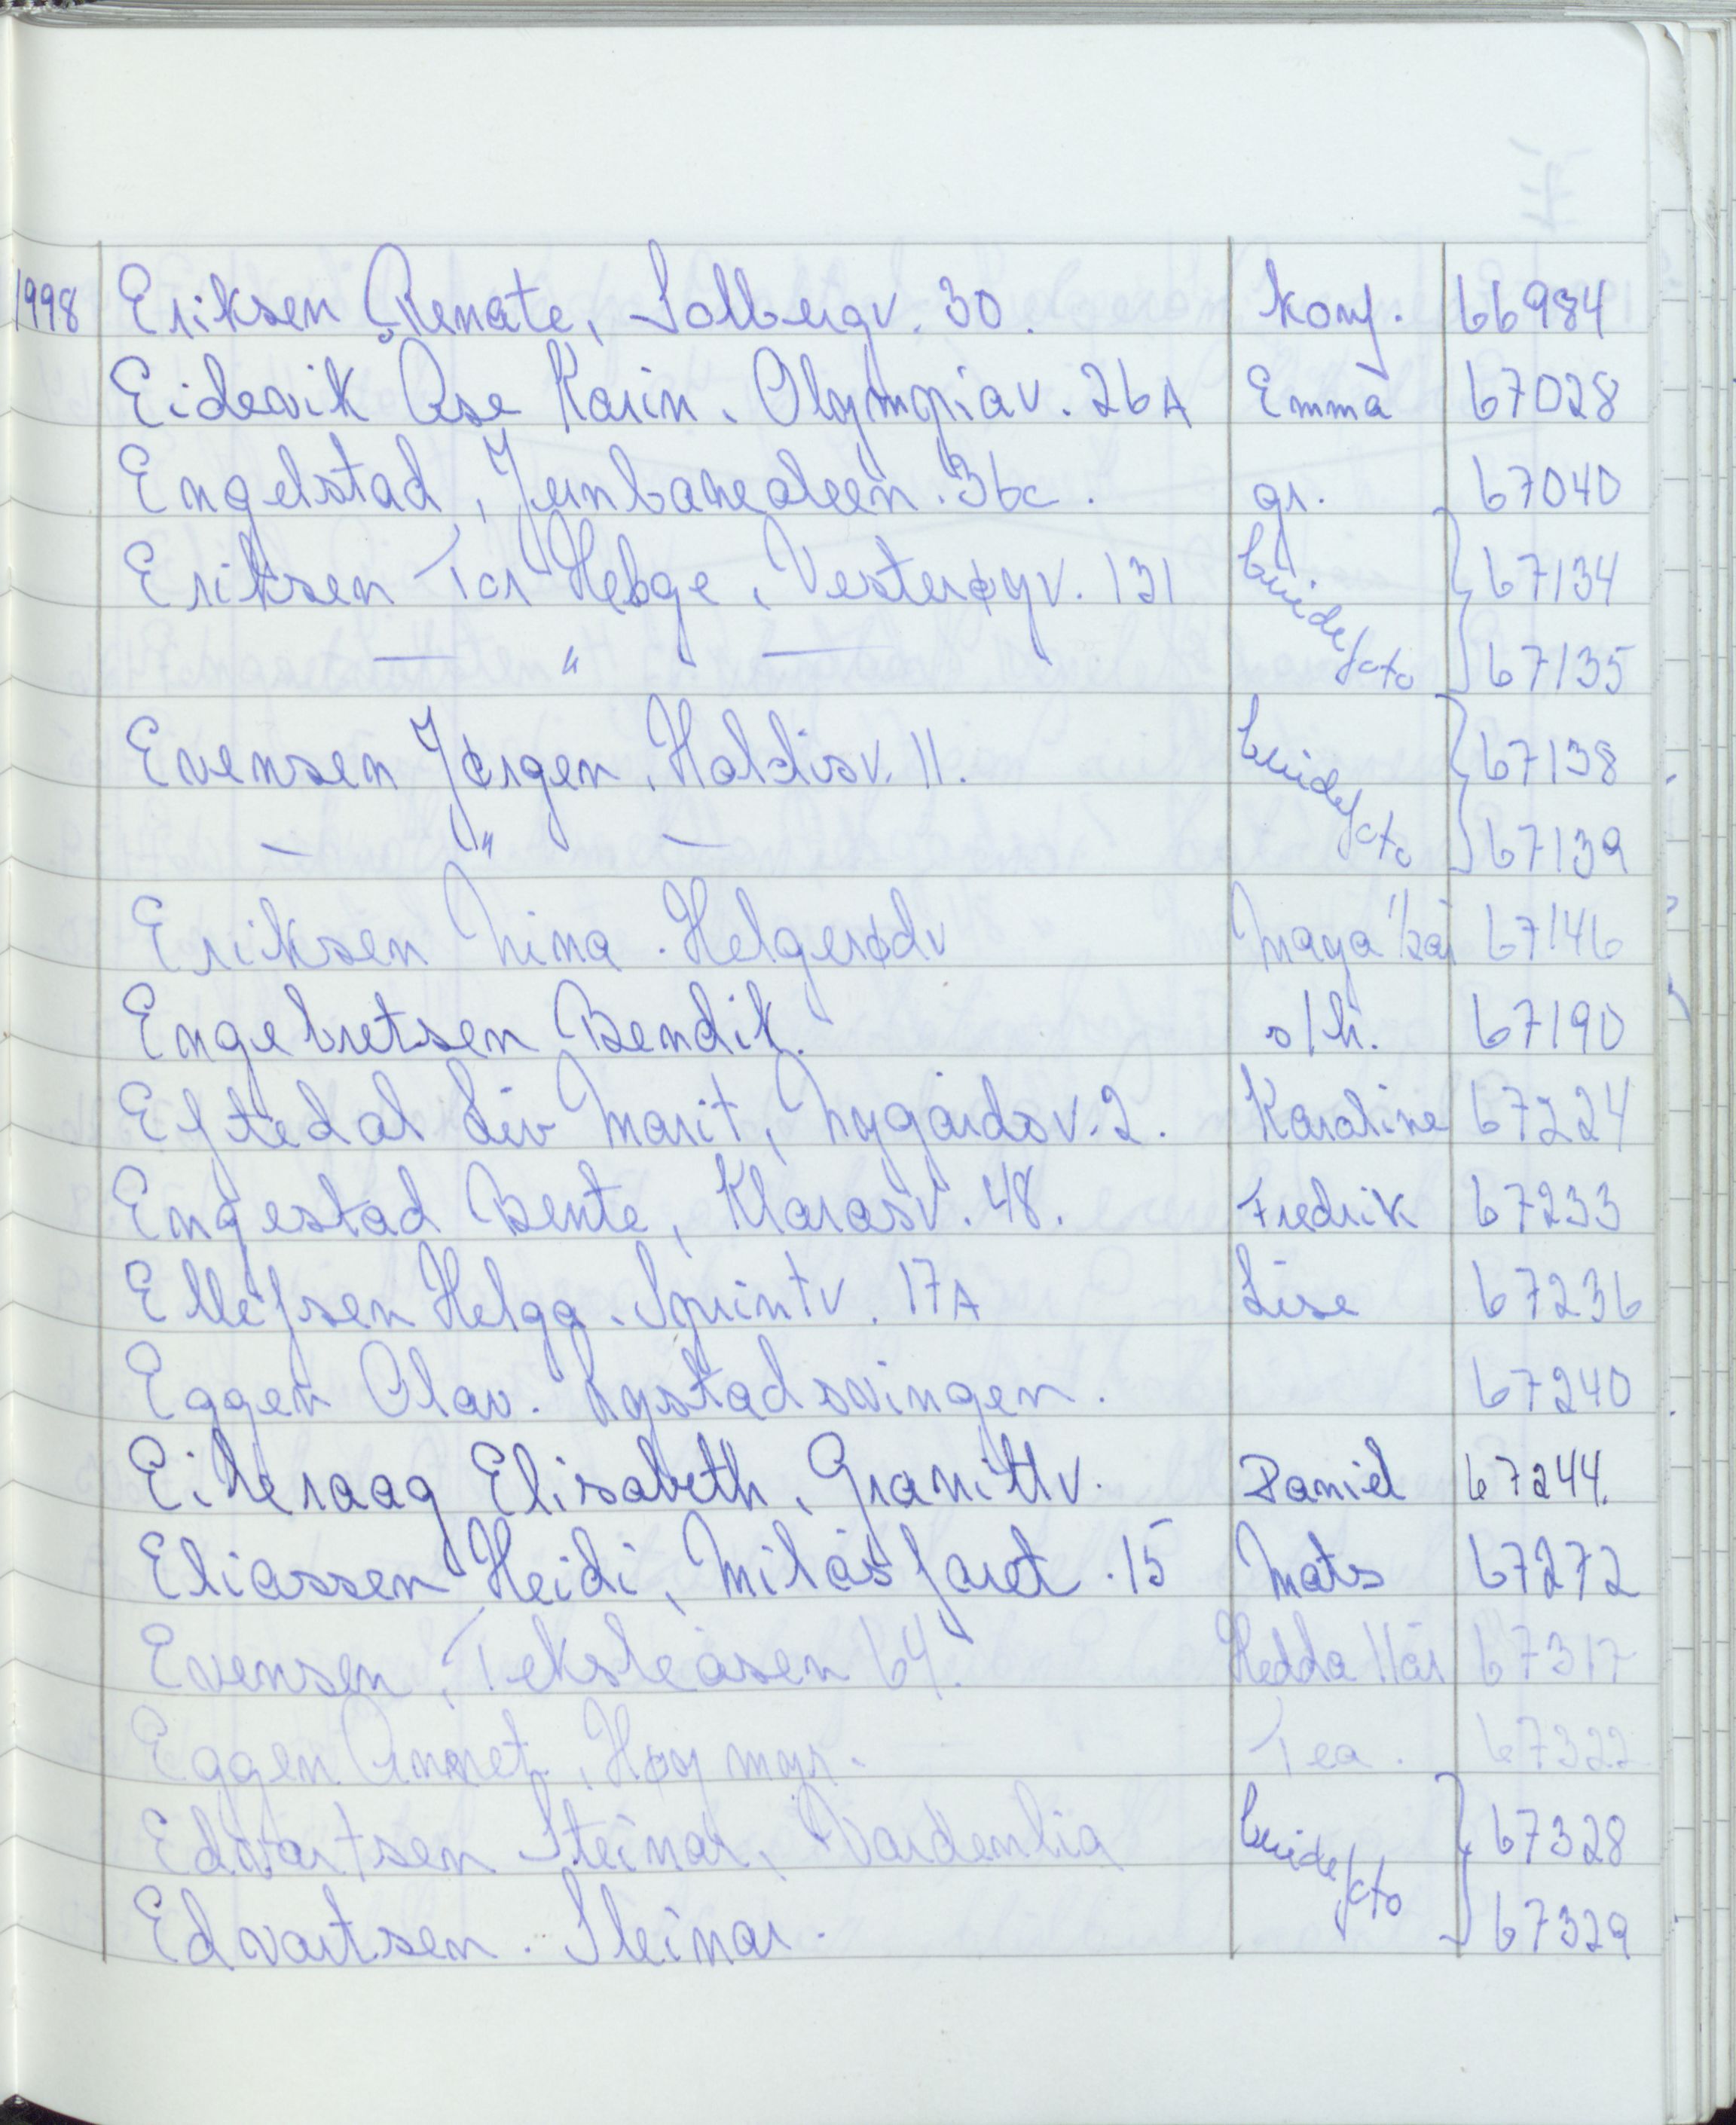 1998 Eriksen Renate, Solbergv. 30. konf. 66984
Eidsvik Åse Karin. Olympiav. 26A Emma 67028
Engelstad, Jernbanealeen. 36c. gr. 67040
Eriksen Tor Helge, Vesterøyv. 131 brudefoto 67134
— " — 67135
Evensen Jørgen, Haldisv. 11. brudefoto 67138
— " — 67139
Eriksen Nina. Helgerødv Maya 67146
Engebretsen Bendik. s/h. 67190
Eftedal Liv Marit, Nygårdsv. 2. Karoline 67224
Engestad Bente, Klarasv. 48. Fredrik 67233
Ellefsen Helga. Sprintv. 17A Lise 67236
Eggen Olav. Lystadsvingen. 67240
Eikeraag Elisabeth, Granittv. Daniel 67244.
Eliassen Heidi, Milåsfaret. 15 Mats 67272
Evensen, Teksleåsen 64. Hedda 11år 67317
Eggen Annet, Høymyr. Tea. 67322
Edvartsen Steinar, Vardenlia brudefoto 67328
Edvartsen. Steinar. 67329